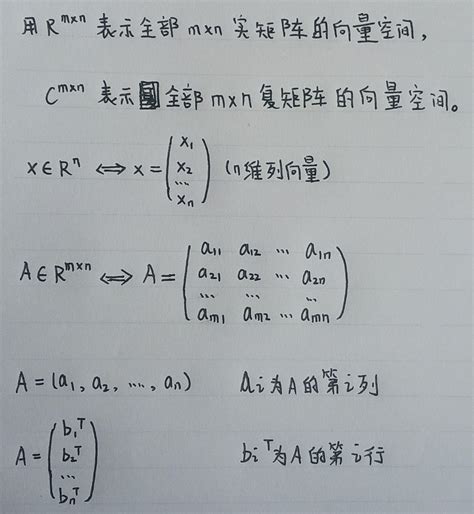 用 R^{m×n} 表示全部 m×n 实矩阵的向量空间，
C^{m×n} 表示 全部 m×n 复矩阵的向量空间。
x∈R^n ⟺ x = (x_1 x_2 ... x_n) (n维列向量)
A∈R^{m×n} ⟺ A =
(a_{11} a_{12} ... a_{1n}
a_{21} a_{22} ... a_{2n}
... ... ...
a_{m1} a_{m2} ... a_{mn})
A = (a_1, a_2, ..., a_n) a_i为A的第i列
A = (b_1^T b_2^T ... b_n^T) b_i^T为A的第i行